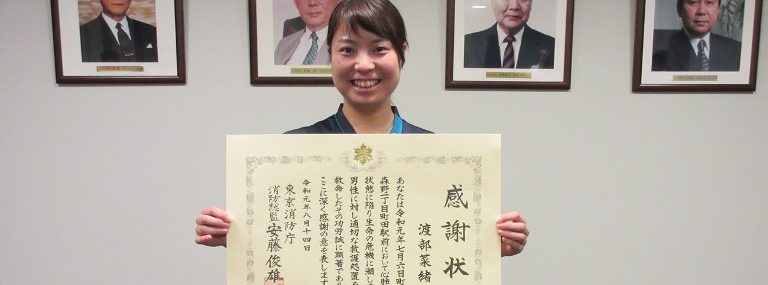 感謝状
渡部菜緒
あなたは令和元年七月六日町
森野一丁目町田駅前において心肺
状態に陥り生命の危機に瀕し
男性に対し適切な救護処置を
救命したその功労誠に顕著であり
ここに深く感謝の意を表します
令和元年八月十四日
東京消防庁
消防総監 安藤俊雄